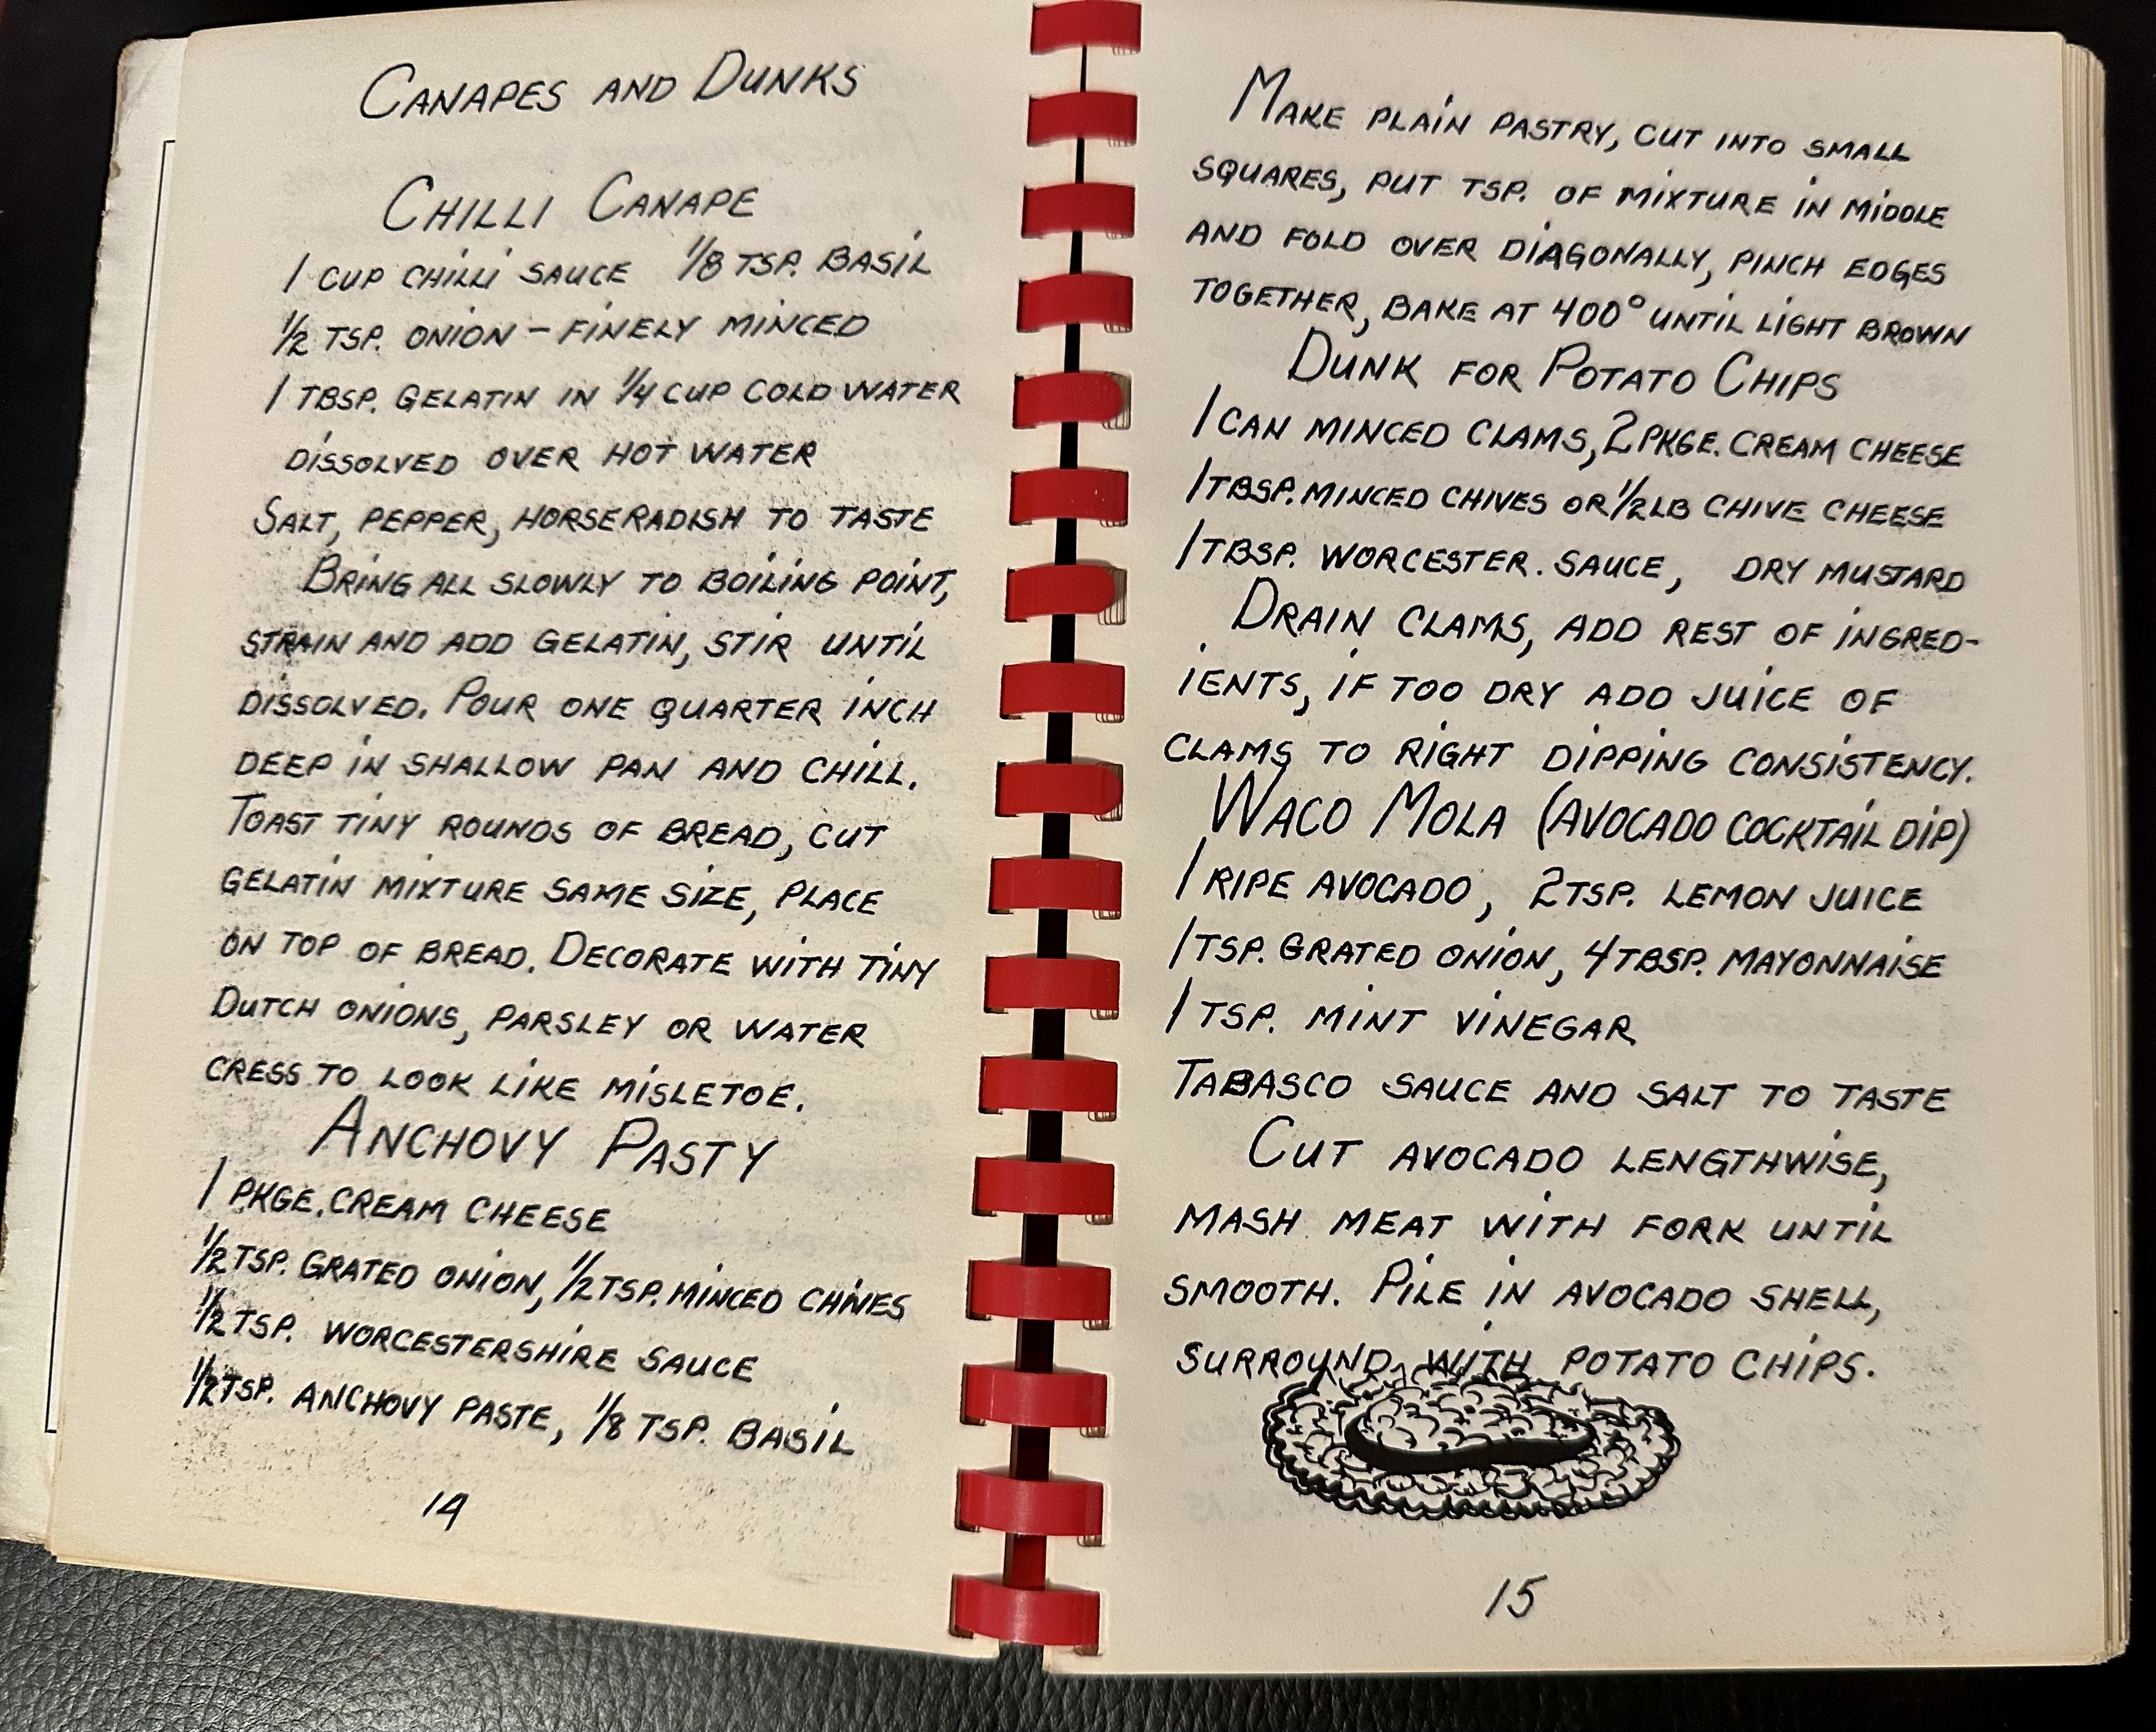 CANAPES AND DUNKS
CHILLI CANAPE
1 CUP CHILLI SAUCE 1/8 TSP. BASIL
1/2 TSP. ONION - FINELY MINCED
1 TBSP. GELATIN IN 1/4 CUP COLD WATER
DISSOLVED OVER HOT WATER
SALT, PEPPER, HORSERADISH TO TASTE
BRING ALL SLOWLY TO BOILING POINT,
STRAIN AND ADD GELATIN, STIR UNTIL
DISSOLVED. POUR ONE QUARTER INCH
DEEP IN SHALLOW PAN AND CHILL.
TOAST TINY ROUNDS OF BREAD, CUT
GELATIN MIXTURE SAME SIZE, PLACE
ON TOP OF BREAD. DECORATE WITH TINY
DUTCH ONIONS, PARSLEY OR WATER
CRESS TO LOOK LIKE MISLETOE.
ANCHOVY PASTY
1 PKGE. CREAM CHEESE
1/2 TSP. GRATED ONION, 1/2 TSP. MINCED CHIVES
1/2 TSP. WORCESTERSHIRE SAUCE
1/2 TSP. ANCHOVY PASTE, 1/8 TSP. BASIL
14
MAKE PLAIN PASTRY, CUT INTO SMALL
SQUARES, PUT TSP. OF MIXTURE IN MIDDLE
AND FOLD OVER DIAGONALLY, PINCH EDGES
TOGETHER, BAKE AT 400° UNTIL LIGHT BROWN
DUNK FOR POTATO CHIPS
1 CAN MINCED CLAMS, 2 PKGE. CREAM CHEESE
1 TBSP. MINCED CHIVES OR 1/2 LB CHIVE CHEESE
1 TBSP. WORCESTER. SAUCE, DRY MUSTARD
DRAIN CLAMS, ADD REST OF INGRED-
IENTS, IF TOO DRY ADD JUICE OF
CLAMS TO RIGHT DIPPING CONSISTENCY.
WACO MOLA (AVOCADO COCKTAIL DIP)
1 RIPE AVOCADO, 2 TSP. LEMON JUICE
1 TSP. GRATED ONION, 4 TBSP. MAYONNAISE
1 TSP. MINT VINEGAR
TABASCO SAUCE AND SALT TO TASTE
CUT AVOCADO LENGTHWISE,
MASH MEAT WITH FORK UNTIL
SMOOTH. PILE IN AVOCADO SHELL,
SURROUND WITH POTATO CHIPS.
15